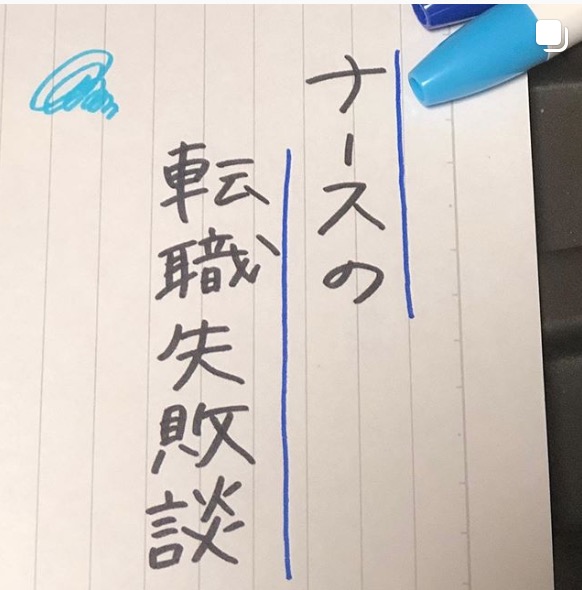 ナースの
転職失敗談